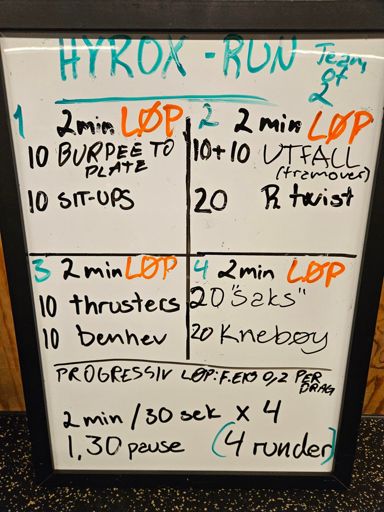 HYROX - RUN
Team
of
2
1 2 min LØP
10 BURPEE TO
PLATE
10 SIT-UPS
2 2 min LØP
10+10 UTFALL
(framover)
20 R twist
3 2 min LØP
10 thrusters
10 benhev
4 2 min LØP
20 "saks"
20 Knebøy
PROGRESSIV LØP: F.EKS 0,2 PER
DRAG
2 min / 30 sek x 4
1,30 pause (4 runder)